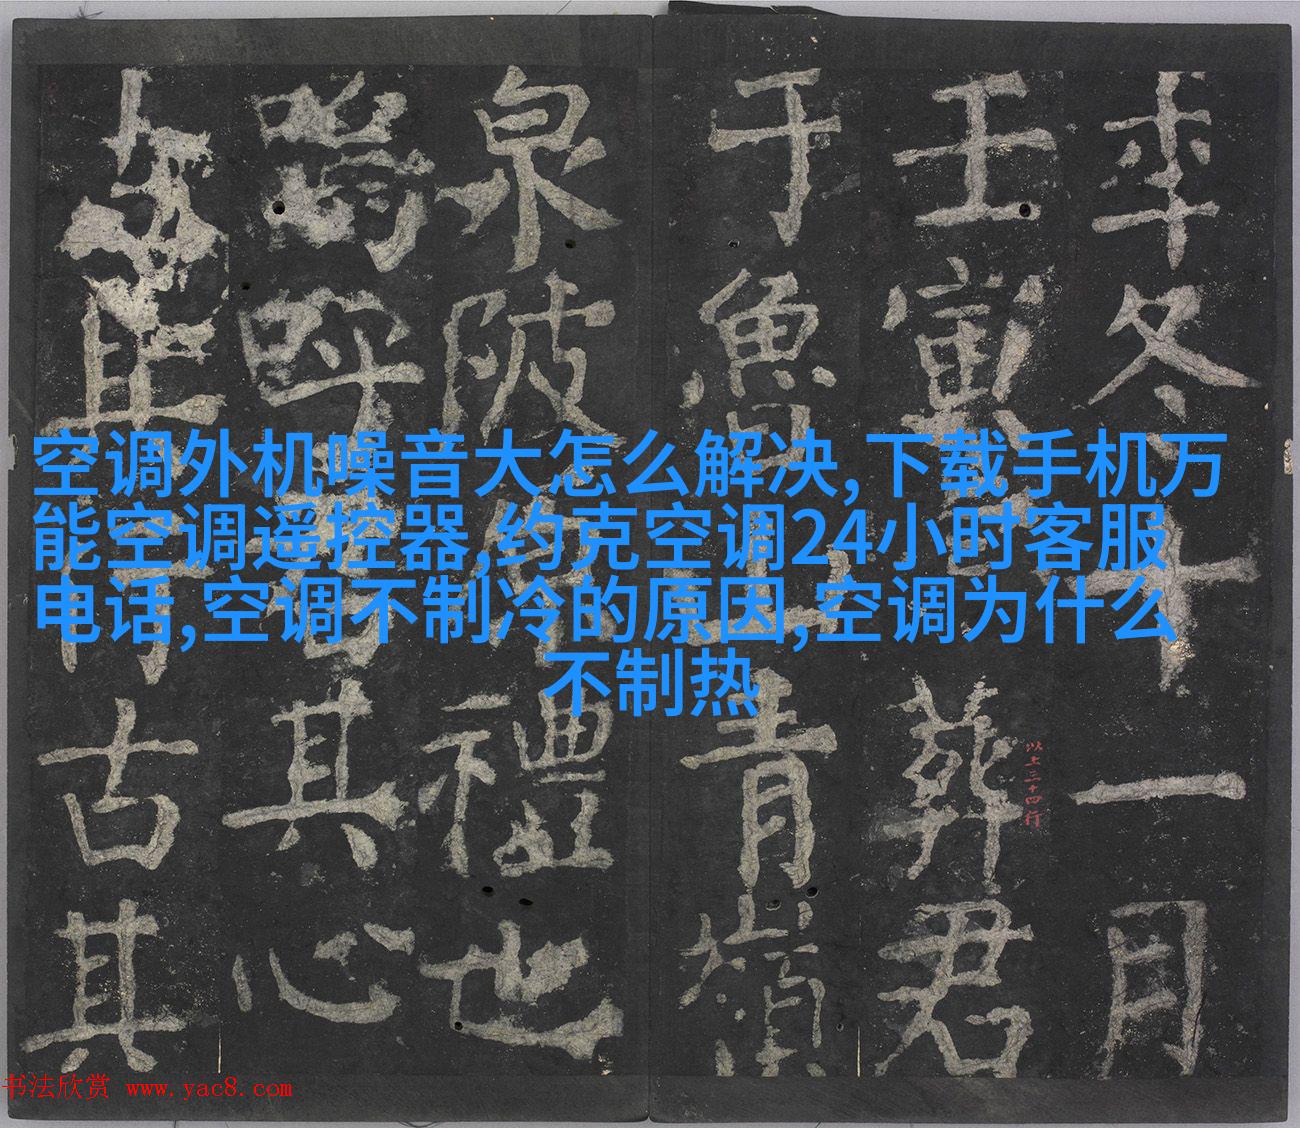 空调外机噪音大怎么解决,下载手机万
能空调遥控器,约克空调24小时客服
电话,空调不制冷的原因,空调为什么
不制热
年冬十一月
壬寅葬君
于魯山青嶺
泉陂原禮也
嗚呼其心
行古其
以上三十四行
书法欣赏 www.yac8.com